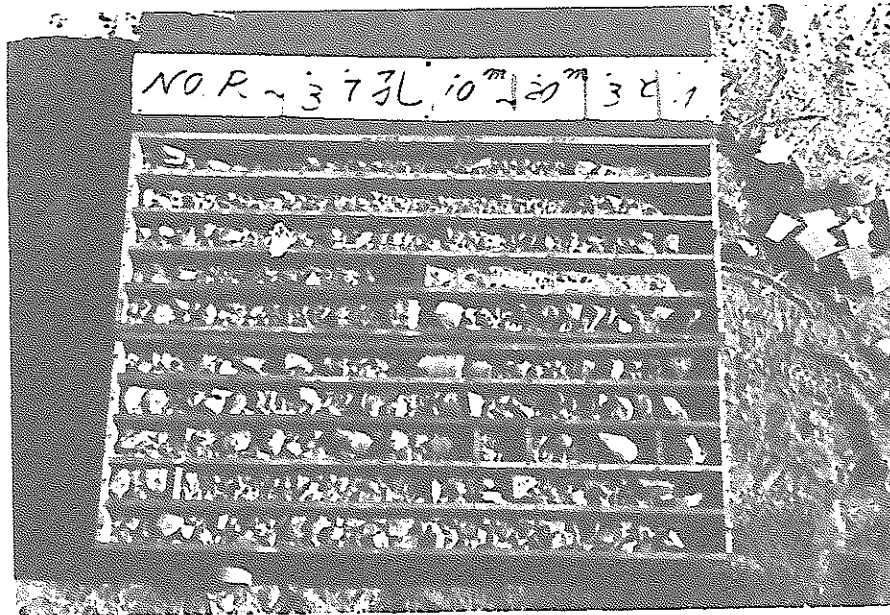 NO. P. ~ 3 7孔 10m~20m 3 ~ 1